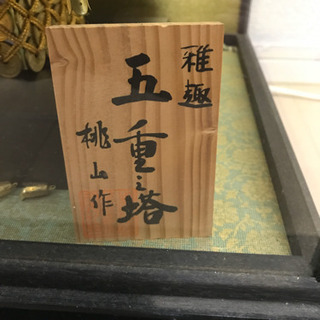 雅趣
五重之塔
桃山作